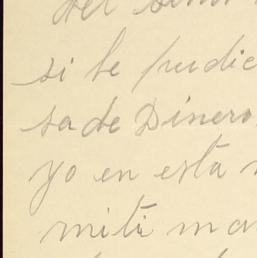 del
si le pudie
sa de Dinero
yo en esta
miti ma